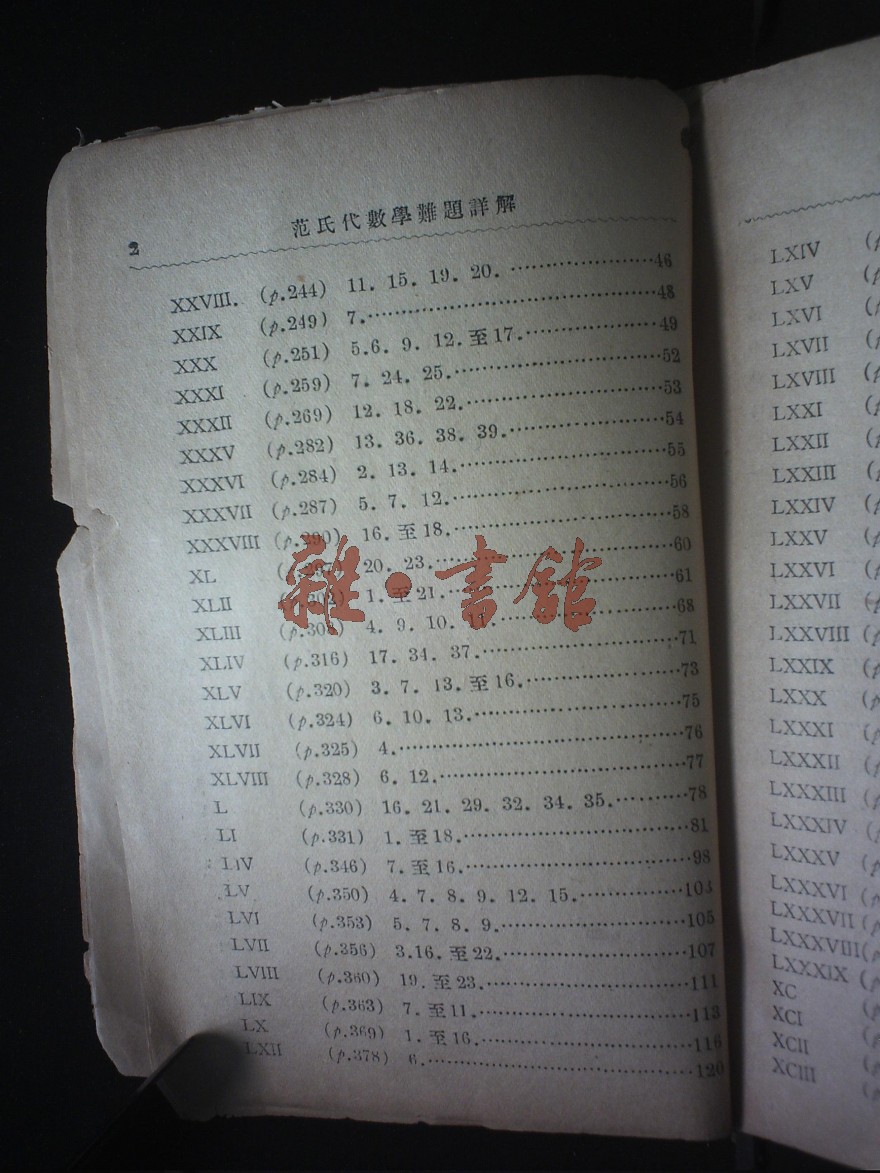 2
范氏代數學難題詳解
XXVIII. (p.244) 11. 15. 19. 20. ……………………46
XXIX (p.249) 7.……………………48
XXX (p.251) 5.6. 9. 12. 至17.……………………49
XXXI (p.259) 7. 24. 25.……………………52
XXXII (p.269) 12. 18. 22.……………………53
XXXV (p.282) 13. 36. 38. 39.……………………54
XXXVI (p.284) 2. 13. 14.……………………55
XXXVII (p.287) 5. 7. 12.……………………56
XXXVIII (p.290) 16. 至18.……………………58
XL 20. 23.……………………60
XLII 1. 至21.……………………61
XLIII 4. 9. 10. 11.……………………68
XLIV (p.316) 17. 34. 37.……………………71
XLV (p.320) 3. 7. 13. 至16.……………………73
XLVI (p.324) 6. 10. 13.……………………75
XLVII (p.325) 4.……………………76
XLVIII (p.328) 6. 12.……………………77
L (p.330) 16. 21. 29. 32. 34. 35.…………78
LI (p.331) 1. 至18.……………………81
LIV (p.346) 7. 至16.……………………98
LV (p.350) 4. 7. 8. 9. 12. 15.……………103
LVI (p.353) 5. 7. 8. 9.……………………105
LVII (p.356) 3.16. 至22.……………………107
LVIII (p.360) 19. 至23.……………………111
LIX (p.363) 7. 至11.……………………113
LX (p.369) 1. 至16.……………………116
LXII (p.378) 6.……………………120
雜·書館
LXIV (
LXV (
LXVI (
LXVII (
LXVIII (
LXXI (
LXXII (
LXXIII (
LXXIV (
LXXV (
LXXVI (
LXXVII (
LXXVIII (
LXXIX (
LXXX (
LXXXI (
LXXXII (
LXXXIII (
LXXXIV (
LXXXV (
LXXXVI (
LXXXVII (
LXXXVIII(
LXXXIX (
XC (
XCI (
XCII (
XCIII (